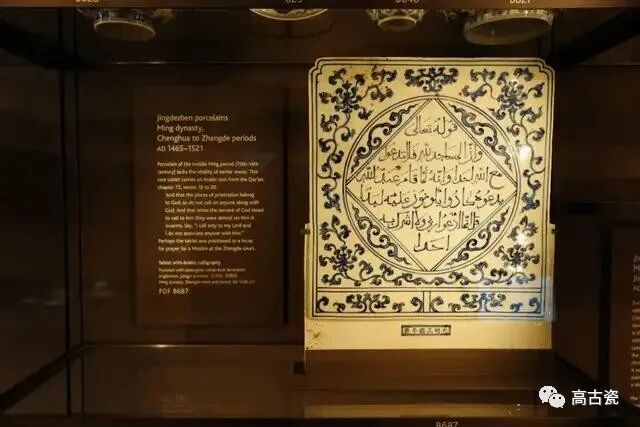 Jingdezhen porcelains
Ming dynasty,
Chenghua to Zhengde periods
AD 1465–1521
Porcelain of the middle Ming period (15th–16th
century) lacks the vitality of earlier wares. This
rare tablet carries an Arabic text from the Qur'an,
chapter 72, verses 18 to 20:
'And that the places of prostration belong
to God, so do not call on anyone along with
God. And that when the servant of God stood
to call to him they were almost on him in
swarms. Say, "I call only to my Lord and
I do not associate anyone with him."'
Perhaps the tablet was positioned as a focus
for prayer for a Muslim at the Zhengde court.
Tablet with Arabic calligraphy
PDF B687
قوله تعالى
وان المساجد لله فلا تدعوا
مع الله احدا وانه لما قام عبد الله
يدعوه كادوا يكونون عليه لبدا
قل انما ادعوا ربي ولا اشرك به
احدا
大明正德年製
B687
高古瓷